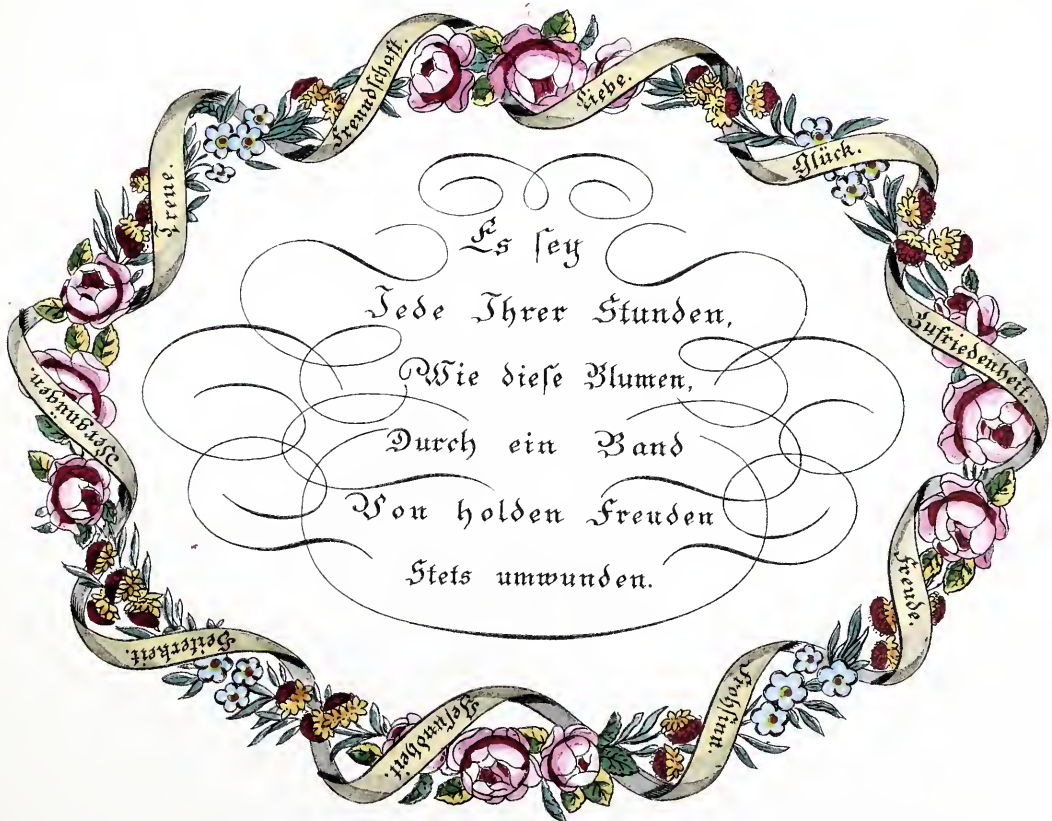 Es sey
Jede Ihrer Stunden,
Wie diese Blumen,
Durch ein Band
Von holden Freuden
Stets umwunden.
Liebe.
Glück.
Zufriedenheit.
Freude.
Frohsinn.
Gesundheit.
Heiterkeit.
Vergnugen.
Treue.
Freundschaft.